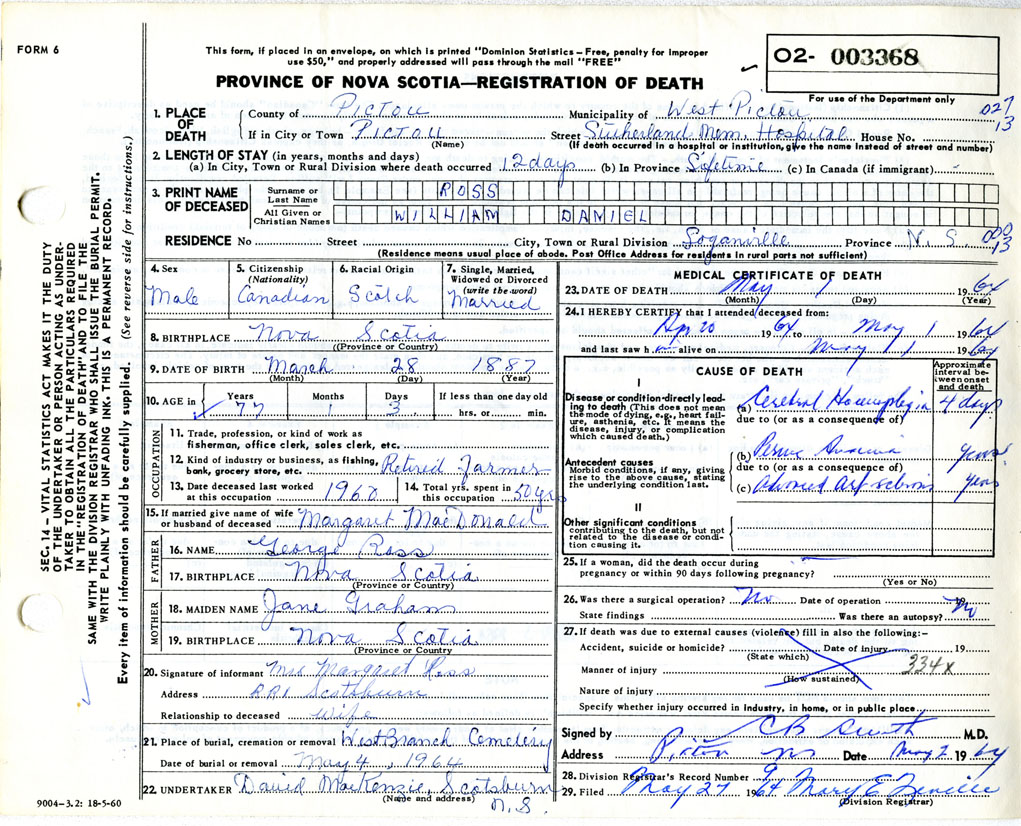 FORM 6
This form, if placed in an envelope, on which is printed "Dominion Statistics – Free, penalty for improper
use $50," and properly addressed will pass through the mail "FREE"
O2- 003368
PROVINCE OF NOVA SCOTIA—REGISTRATION OF DEATH
For use of the Department only
027
13
1. PLACE OF DEATH
County of PICTOU Municipality of West Pictou
If in City or Town PICTOU Street Sutherland Mem. Hospital House No.
(Name) (If death occurred in a hospital or institution, give the name instead of street and number)
2. LENGTH OF STAY (in years, months and days)
(a) In City, Town or Rural Division where death occurred 12 days (b) In Province Lifetime (c) In Canada (if immigrant) -
3. PRINT NAME OF DECEASED
Surname or Last Name ROSS
All Given or Christian Names WILLIAM DANIEL
RESIDENCE No Street City, Town or Rural Division Loganville Province N. S
000
13
(Residence means usual place of abode. Post Office Address for residents in rural parts not sufficient)
4. Sex
Male
5. Citizenship (Nationality)
Canadian
6. Racial Origin
Scotch
7. Single, Married, Widowed or Divorced (write the word)
Married
8. BIRTHPLACE Nova Scotia
(Province or Country)
9. DATE OF BIRTH March 28 1887
(Month) (Day) (Year)
10. AGE in Years Months Days If less than one day old
77 1 3 hrs. or min.
OCCUPATION
11. Trade, profession, or kind of work as
fisherman, office clerk, sales clerk, etc.
12. Kind of industry or business, as fishing,
bank, grocery store, etc. Retired Farmer
13. Date deceased last worked at this occupation 1960
14. Total yrs. spent in this occupation 50 yrs
15. If married give name of wife
or husband of deceased Margaret MacDonald
FATHER
16. NAME George Ross
17. BIRTHPLACE Nova Scotia
(Province or Country)
MOTHER
18. MAIDEN NAME Jane Graham
19. BIRTHPLACE Nova Scotia
Province or Country
20. Signature of informant Mrs Margaret Ross
Address RR1 Scotsburn
Relationship to deceased Wife
21. Place of burial, cremation or removal West Branch Cemetery
Date of burial or removal May 4, 1964
22. UNDERTAKER David MacKenzie, Scotsburn
(Name and address) N. S.
9004–3.2: 18-5-60
MEDICAL CERTIFICATE OF DEATH
23. DATE OF DEATH May 1 1964
(Month) (Day) (Year)
24. I HEREBY CERTIFY that I attended deceased from:
Apr 20 1964 to May 1 1964
and last saw h alive on May 1 1964
CAUSE OF DEATH
Approximate interval between onset and death
I
Disease or condition directly leading to death (This does not mean the mode of dying, e.g., heart failure, asthenia, etc. It means the disease, injury, or complication which caused death.)
(a) Cerebral Hemiplegia 4 days
due to (or as a consequence of)
Antecedent causes
Morbid conditions, if any, giving rise to the above cause, stating the underlying condition last.
(b) Anaemia years
due to (or as a consequence of)
(c) Advanced years
II
Other significant conditions
contributing to the death, but not related to the disease or condition causing it.
25. If a woman, did the death occur during
pregnancy or within 90 days following pregnancy?
(Yes or No)
26. Was there a surgical operation? No Date of operation 19
State findings Was there an autopsy? No
27. If death was due to external causes (violence) fill in also the following:–
Accident, suicide or homicide? Date of injury 19
(State which)
Manner of injury 334x
(How sustained)
Nature of injury
Specify whether injury occurred in industry, in home, or in public place
Signed by C B Smith M.D.
Address Pictou NS Date May 2 1964
28. Division Registrar's Record Number 9
29. Filed May 27 1964 Mary E
(Division Registrar)
SEC. 14 – VITAL STATISTICS ACT MAKES IT THE DUTY
OF THE UNDERTAKER OR PERSON ACTING AS UNDER-
TAKER TO OBTAIN ALL THE PARTICULARS REQUIRED
IN THE "REGISTRATION OF DEATH" AND TO FILE THE
SAME WITH THE DIVISION REGISTRAR WHO SHALL ISSUE THE BURIAL PERMIT.
WRITE PLAINLY WITH UNFADING INK. THIS IS A PERMANENT RECORD.
Every item of information should be carefully supplied. (See reverse side for instructions.)